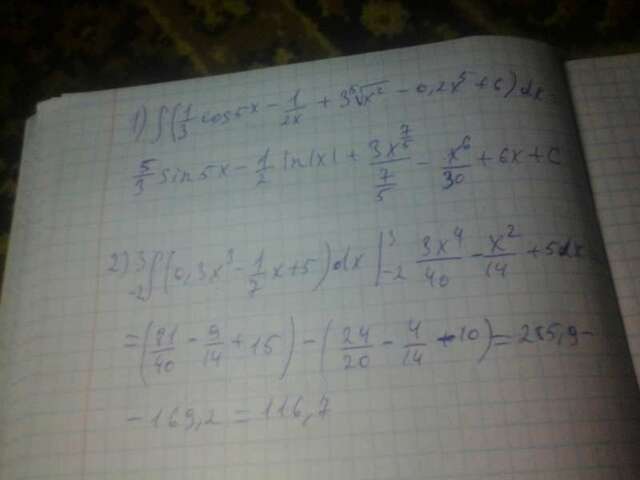 1) ∫(1/3 cos5x - 1/2x + 3⁵√x² - 0,2x⁵ + 6)dx
5/3 sin5x - 1/2 ln|x| + 3x^(7/5)/(7/5) - x⁶/30 + 6x + C
2) ₋₂³∫(0,3x³ - 1/7 x + 5)dx |₋₂³ 3x⁴/40 - x²/14 + 5dx
= (81/40 - 9/14 + 15) - (24/20 - 4/14 - 10) = 285,9 -
- 169,2 = 116,7